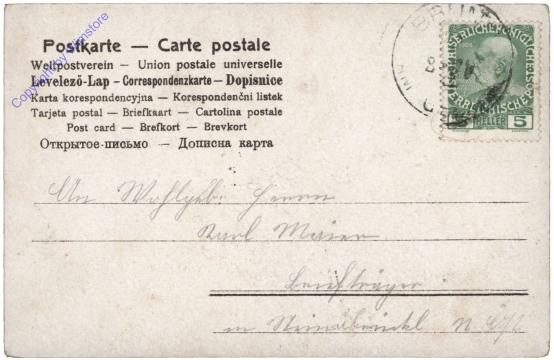 Postkarte — Carte postale
Weltpostverein — Union postale universelle
Levelező-Lap – Correspondenzkarte – Dopisnice
Karta korespondencyjna — Korespondenční listek
Tarjeta postal — Briefkaart — Cartolina postale
Post card — Brefkort — Brevkort
Открытое-письмо — Дописна карта
KAISERLICHE KÖNIGLICHE
ÖSTERREICHISCHE
HELLER 5
An Wohlgeb. Herrn
Karl Maier
Briefträger
in